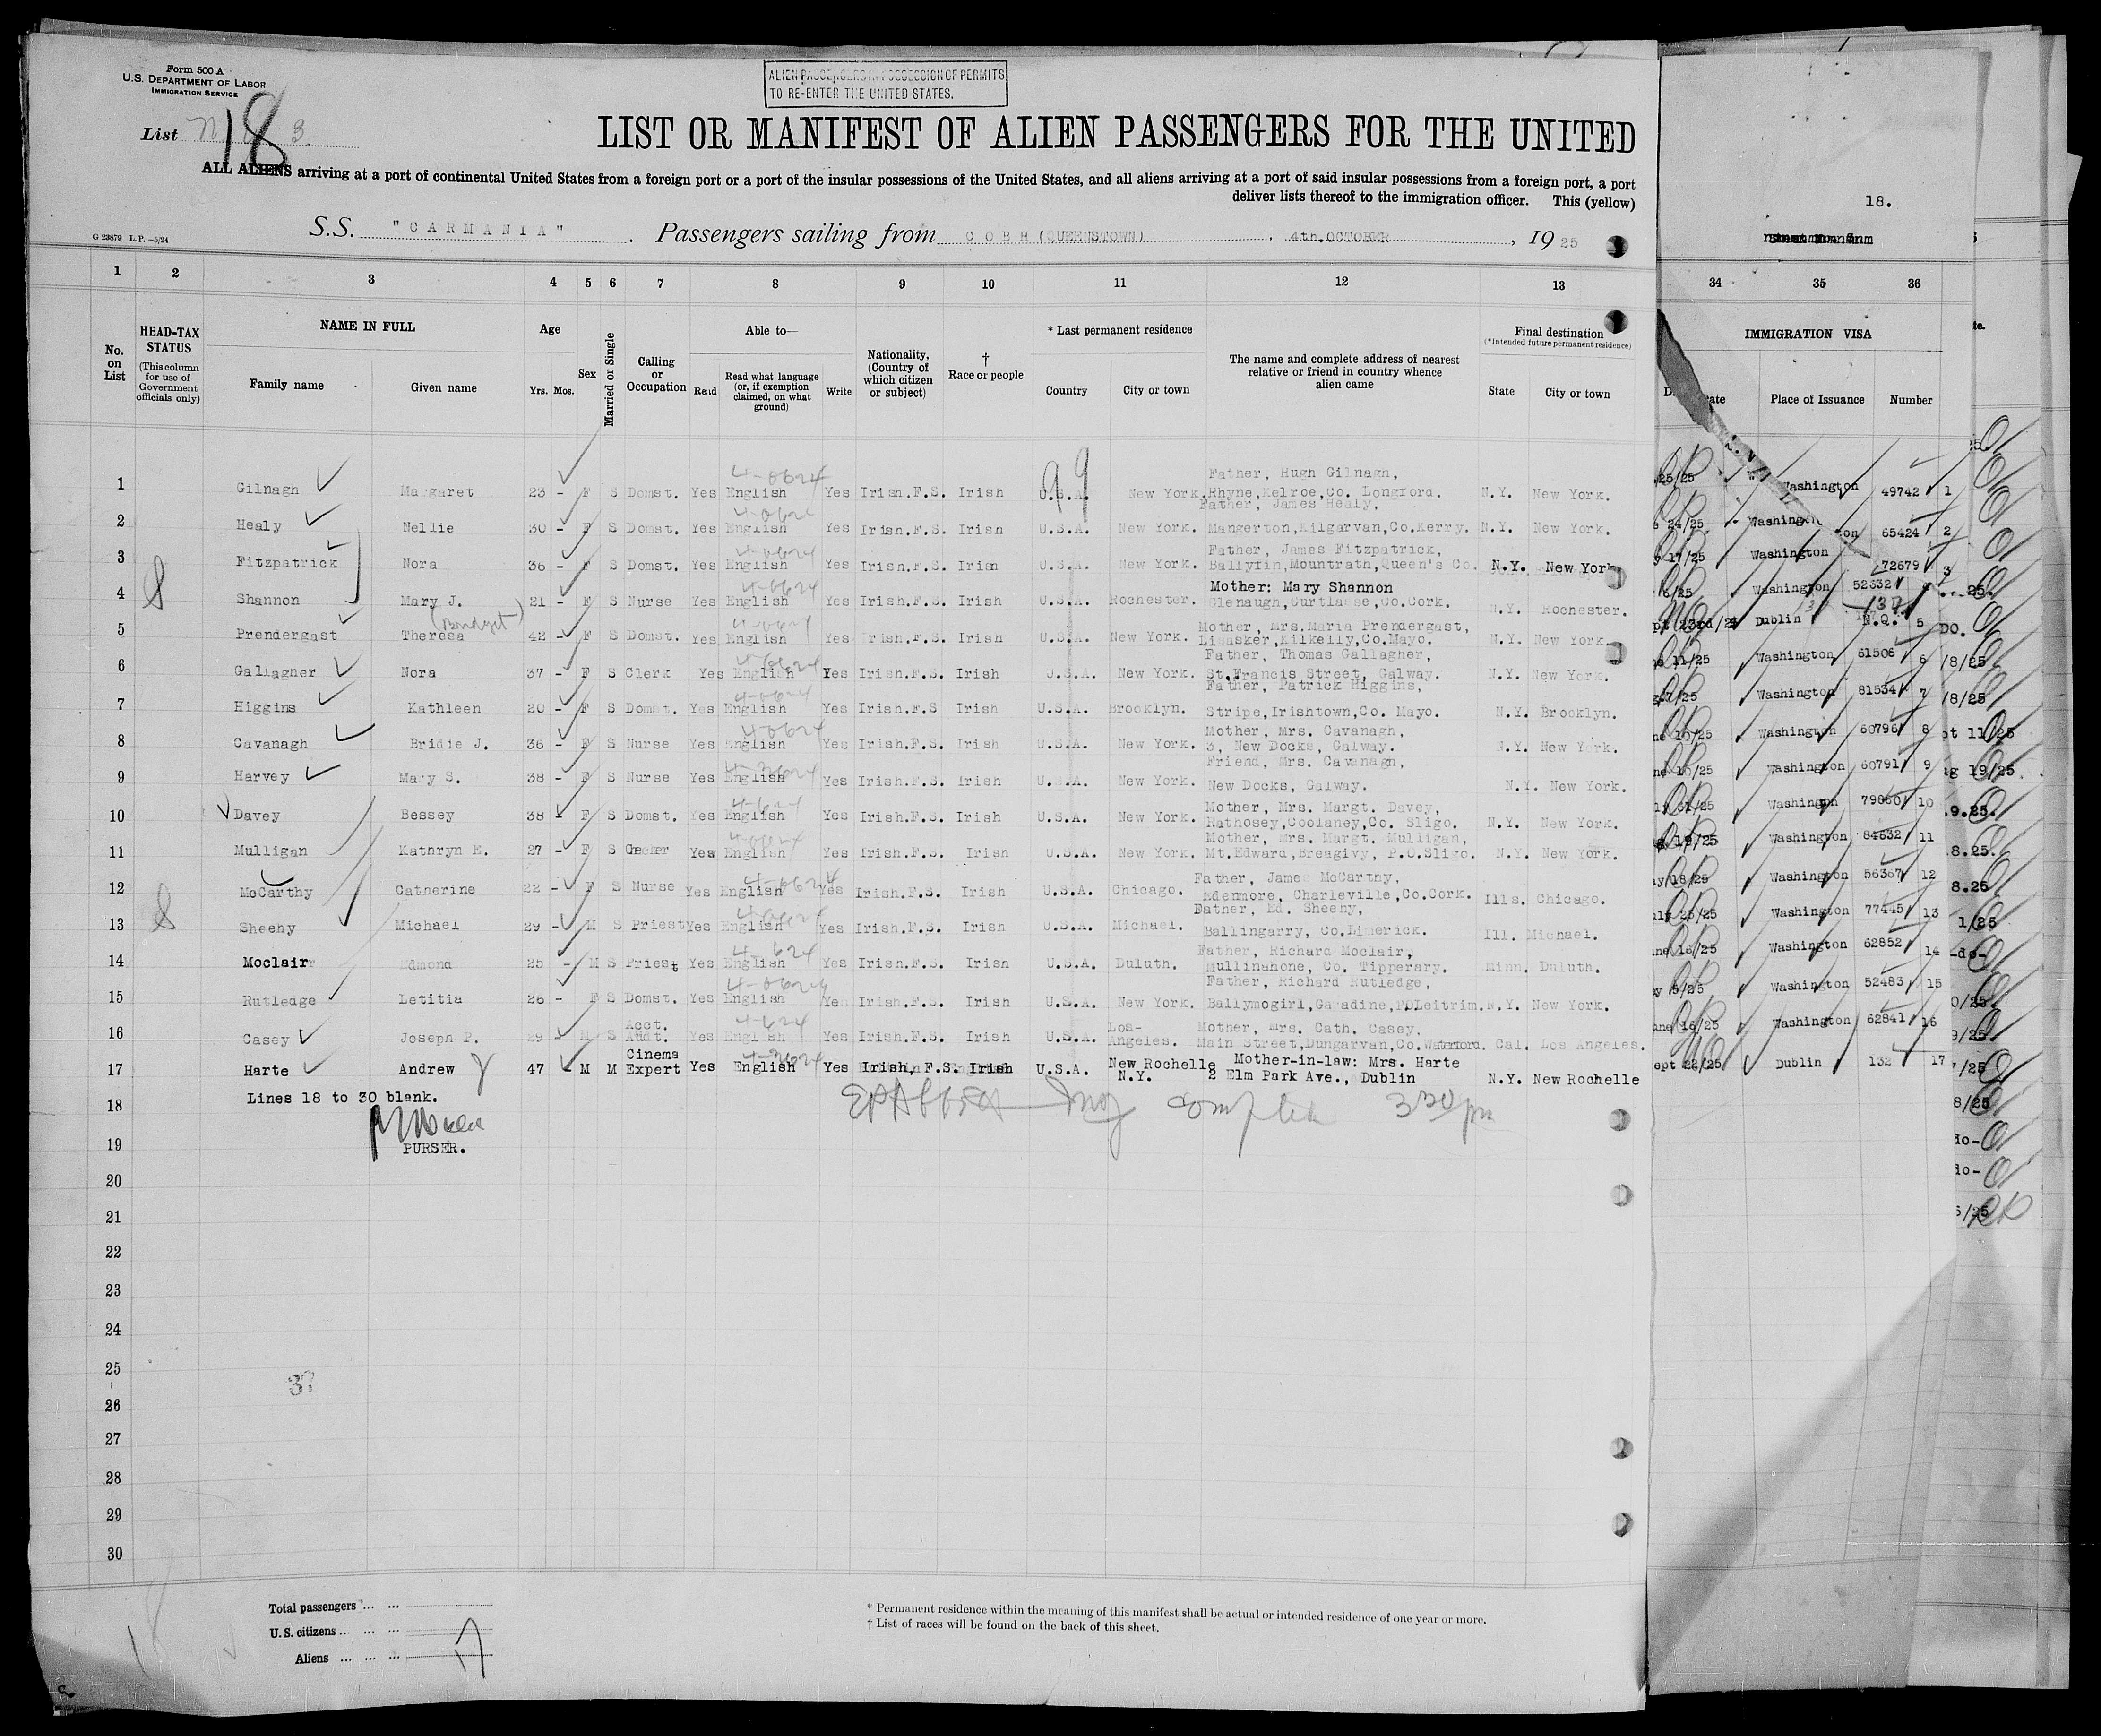 Form 500 A
U.S. DEPARTMENT OF LABOR
IMMIGRATION SERVICE
ALIEN PASSENGERS IN POSSESSION OF PERMITS
TO RE-ENTER THE UNITED STATES.
List 18 3.
LIST OR MANIFEST OF ALIEN PASSENGERS FOR THE UNITED
ALL ALIENS arriving at a port of continental United States from a foreign port or a port of the insular possessions of the United States, and all aliens arriving at a port of said insular possessions from a foreign port, a port
deliver lists thereof to the immigration officer. This (yellow)
18.
G 23879 L.P.—5/24
S.S. "CARMANIA" . Passengers sailing from COBH (QUEENSTOWN) , 4th.OCTOBER , 19 25
1 2 3 4 5 6 7 8 9 10 11 12 13 34 35 36
No. on List
HEAD-TAX STATUS
(This column for use of Government officials only)
NAME IN FULL
Family name Given name
Age
Yrs. Mos.
Sex
Married or Single
Calling or Occupation
Able to—
Read
Read what language (or, if exemption claimed, on what ground)
Write
Nationality, (Country of which citizen or subject)
† Race or people
* Last permanent residence
Country City or town
The name and complete address of nearest relative or friend in country whence alien came
Final destination
(*Intended future permanent residence)
State City or town
IMMIGRATION VISA
Place of Issuance Number
4-0624
Father, Hugh Gilnagh,
1 Gilnagh Margaret 23 - F S Domst. Yes English Yes Irish.F.S. Irish U.S.A. New York. Rhyne,Kelroe,Co. Longford. N.Y. New York. 25/25 Washington 49742 1
Father, James Healy,
2 Healy Nellie 30 - F S Domst. Yes English Yes Irish.F.S. Irish U.S.A. New York. Mangerton,Kilgarvan,Co.Kerry. N.Y. New York. 24/25 Washington 65424 2
4-0624
Father, James Fitzpatrick,
3 Fitzpatrick Nora 36 - F S Domst. Yes English Yes Irish.F.S. Irish U.S.A. New York. Ballyfin,Mountrath,Queen's Co. N.Y. New York 17/25 Washington 72679 3
4-0624
Mother: Mary Shannon
4 Shannon Mary J. 21 - F S Nurse Yes English Yes Irish.F.S. Irish U.S.A. Rochester. Glenaugh,Gurtlasse,Co.Cork. N.Y. Rochester. Washington 52332
(Bridget)
137
Mother, Mrs.Maria Prendergast,
5 Prendergast Theresa 42 - F S Domst. Yes English Yes Irish.F.S. Irish U.S.A. New York. Lisasker,Kilkelly,Co.Mayo. N.Y. New York. 23rd/25 Dublin N.Q. 5
4-0624
Father, Thomas Gallagher,
6 Gallagher Nora 37 - F S Clerk Yes English Yes Irish.F.S. Irish U.S.A. New York. St.Francis Street, Galway. N.Y. New York. 11/25 Washington 61506 6
4-0624
Father, Patrick Higgins,
7 Higgins Kathleen 20 - F S Domst. Yes English Yes Irish.F.S Irish U.S.A. Brooklyn. Stripe,Irishtown,Co. Mayo. N.Y. Brooklyn. 7/25 Washington 81534 7
4-0624
Mother, Mrs. Cavanagh,
8 Cavanagh Bridie J. 36 - F S Nurse Yes English Yes Irish.F.S. Irish U.S.A. New York. 3, New Docks, Galway. N.Y. New York. 10/25 Washington 60796 8
Friend, Mrs. Cavanagh,
9 Harvey Mary S. 38 - F S Nurse Yes English Yes Irish.F.S. Irish U.S.A. New York. New Docks, Galway. N.Y. New York. 10/25 Washington 60791 9
4-624
Mother, Mrs. Margt. Davey,
10 Davey Bessey 38 - F S Domst. Yes English Yes Irish.F.S. Irish U.S.A. New York. Rathosey,Coolaney,Co. Sligo. N.Y. New York. 31/25 Washington 79860 10
Mother, Mrs. Margt. Mulligan,
11 Mulligan Kathryn E. 27 - F S Yes English Yes Irish.F.S. Irish U.S.A. New York. Mt.Edward,Breagivy, P.O.Sligo. N.Y. New York. 19/25 Washington 84532 11
4-0624
Father, James McCarthy,
12 McCarthy Catherine 22 - F S Nurse Yes English Yes Irish.F.S. Irish U.S.A. Chicago. Edenmore, Charleville,Co.Cork. Ills. Chicago. 18/25 Washington 56367 12
Father, Ed. Sheehy,
13 Sheehy Michael 29 - M S Priest Yes English Yes Irish.F.S. Irish U.S.A. Michael. Ballingarry, Co.Limerick. Ill. Michael. 25/25 Washington 77445 13
4-624
Father, Richard Moclair,
14 Moclair Edmond 25 - M S Priest Yes English Yes Irish.F.S. Irish U.S.A. Duluth. Mullinahone, Co. Tipperary. Minn. Duluth. 16/25 Washington 62852 14
4-0624
Father, Richard Rutledge,
15 Rutledge Letitia 26 - F S Domst. Yes English Yes Irish.F.S. Irish U.S.A. New York. Ballymogirl,Garadine,POLeitrim. N.Y. New York. 5/25 Washington 52483 15
4-624
Acct. Los- Mother, Mrs. Cath. Casey,
16 Casey Joseph P. 29 - M S Audt. Yes English Yes Irish.F.S. Irish U.S.A. Angeles. Main Street,Dungarvan,Co.Waterford. Cal. Los Angeles. 16/25 Washington 62841 16
Cinema New Rochelle Mother-in-law: Mrs. Harte
17 Harte Andrew 47 M M Expert Yes English Yes Irish, F.S. Irish U.S.A. N.Y. 2 Elm Park Ave., Dublin N.Y. New Rochelle Sept 22/25 Dublin 132 17
Lines 18 to 30 blank.
18
complete 3 30 pm
19
PURSER.
20
21
22
23
24
25
37
26
27
28
29
30
Total passengers ... ...
U.S. citizens ... ... ...
Aliens ... ... ... 17
* Permanent residence within the meaning of this manifest shall be actual or intended residence of one year or more.
† List of races will be found on the back of this sheet.
18